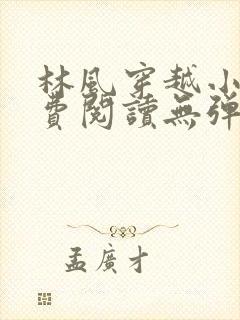 林風穿越小
費閱讀無彈
孟廣才